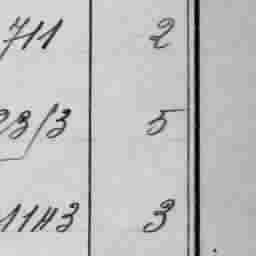 711 2
23/3 5
1143 3